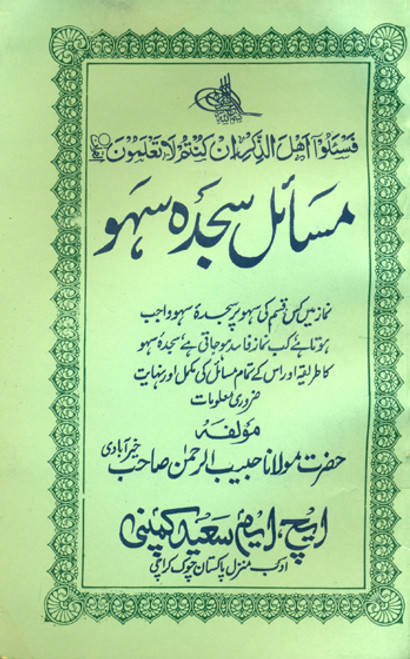 فسئلوآ اهل الذکر ان کنتم لا تعلمون
مسائل سجدۂ سہو
نماز میں کس قسم کی سہو پر سجدۂ سہو واجب
ہوتا ہے کب نماز فاسد ہو جاتی ہے، سجدۂ سہو
کا طریقہ اور اس کے تمام مسائل کی مکمل اور نہایت
ضروری معلومات
مؤلفہ
حضرت مولانا حبیب الرحمٰن صاحب خیرآبادی
ایچ، ایم سعید کمپنی
ادب منزل پاکستان چوک کراچی